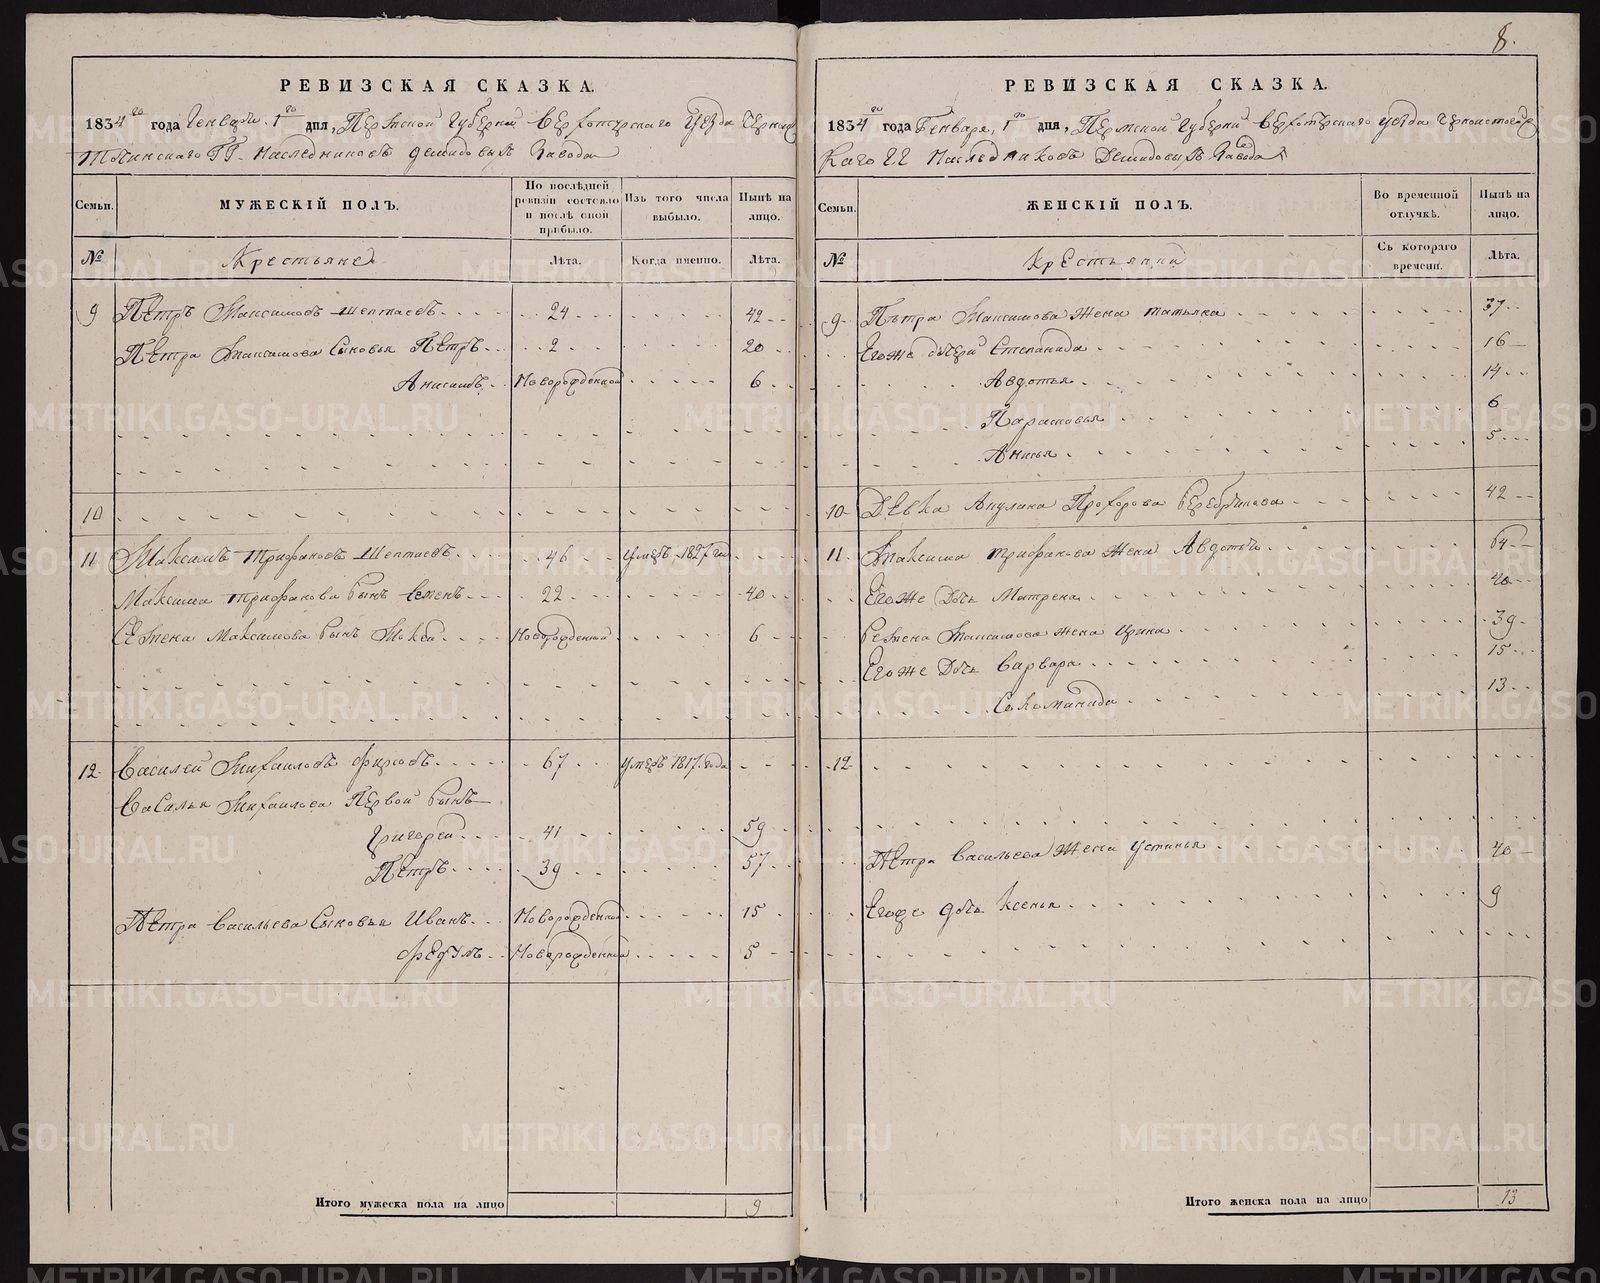 8.
РЕВИЗСКАЯ СКАЗКА.
1834 го года Генваря 1 го дня, Пермской Губерний Верхотурского Уезда Черноис
Точинского ГГ. Наследниковъ Демидовыхъ Завода
Семьи.
МУЖЕСКІЙ ПОЛЪ.
По послѣдней ревизіи состояло и послѣ оной прибыло.
Изъ того числа выбыло.
Нынѣ на лицо.
№
Крестьяне
Лѣта.
Когда именно.
Лѣта.
9 Петръ Максимовъ Шептаевъ 24 42
Петра Максимова Сыновья Петръ 2 20
Анисимъ Новорожденной 6
10
11 Максимъ Трифановъ Шептаевъ 46 Умеръ 1827 го
Максима Трифанова Сынъ Семенъ 22 40
Семена Максимова Сынъ Мокей Новорожденный 6
12 Василей Михаиловъ Фирсовъ 67 Умеръ 1817 года
Василья Михаилова Первой Сынъ
Григорей 41 59
Петръ 39 57
Петра Васильева Сыновья Иванъ Новорожденной 15
Федулъ Новорожденной 5
Итого мужеска пола на лицо 9
РЕВИЗСКАЯ СКАЗКА.
1834 го года Генваря, 1 го дня, Пермской Губерни Верхотурскаго уезда Черноисточин
каго ГГ Наследниковъ Демидовыхъ Завода
Семьи.
ЖЕНСКІЙ ПОЛЪ.
Во временной отлучкѣ.
Нынѣ на лицо.
№
Крестьянки
Съ котораго времени.
Лѣта.
9 Пѣтра Максимова жена Татьяна 37
Егоже дочери Степанида 16
Авдотья 14
Парасковья 6
Анисья 5
10 Девка Акулина Прохорова Серебрикова 42
11 Максима Трифанова жена Авдотья 64
Егоже Дочь Матрена 40
Семена Максимова жена Ирина 39
Егоже Дочь Варвара 15
Соломанида 13
12
Петра Васильева жена Устинья 40
Егоже дочь Ксенья 9
Итого женска пола на лицо 13
METRIKI.GASO-URAL.RU